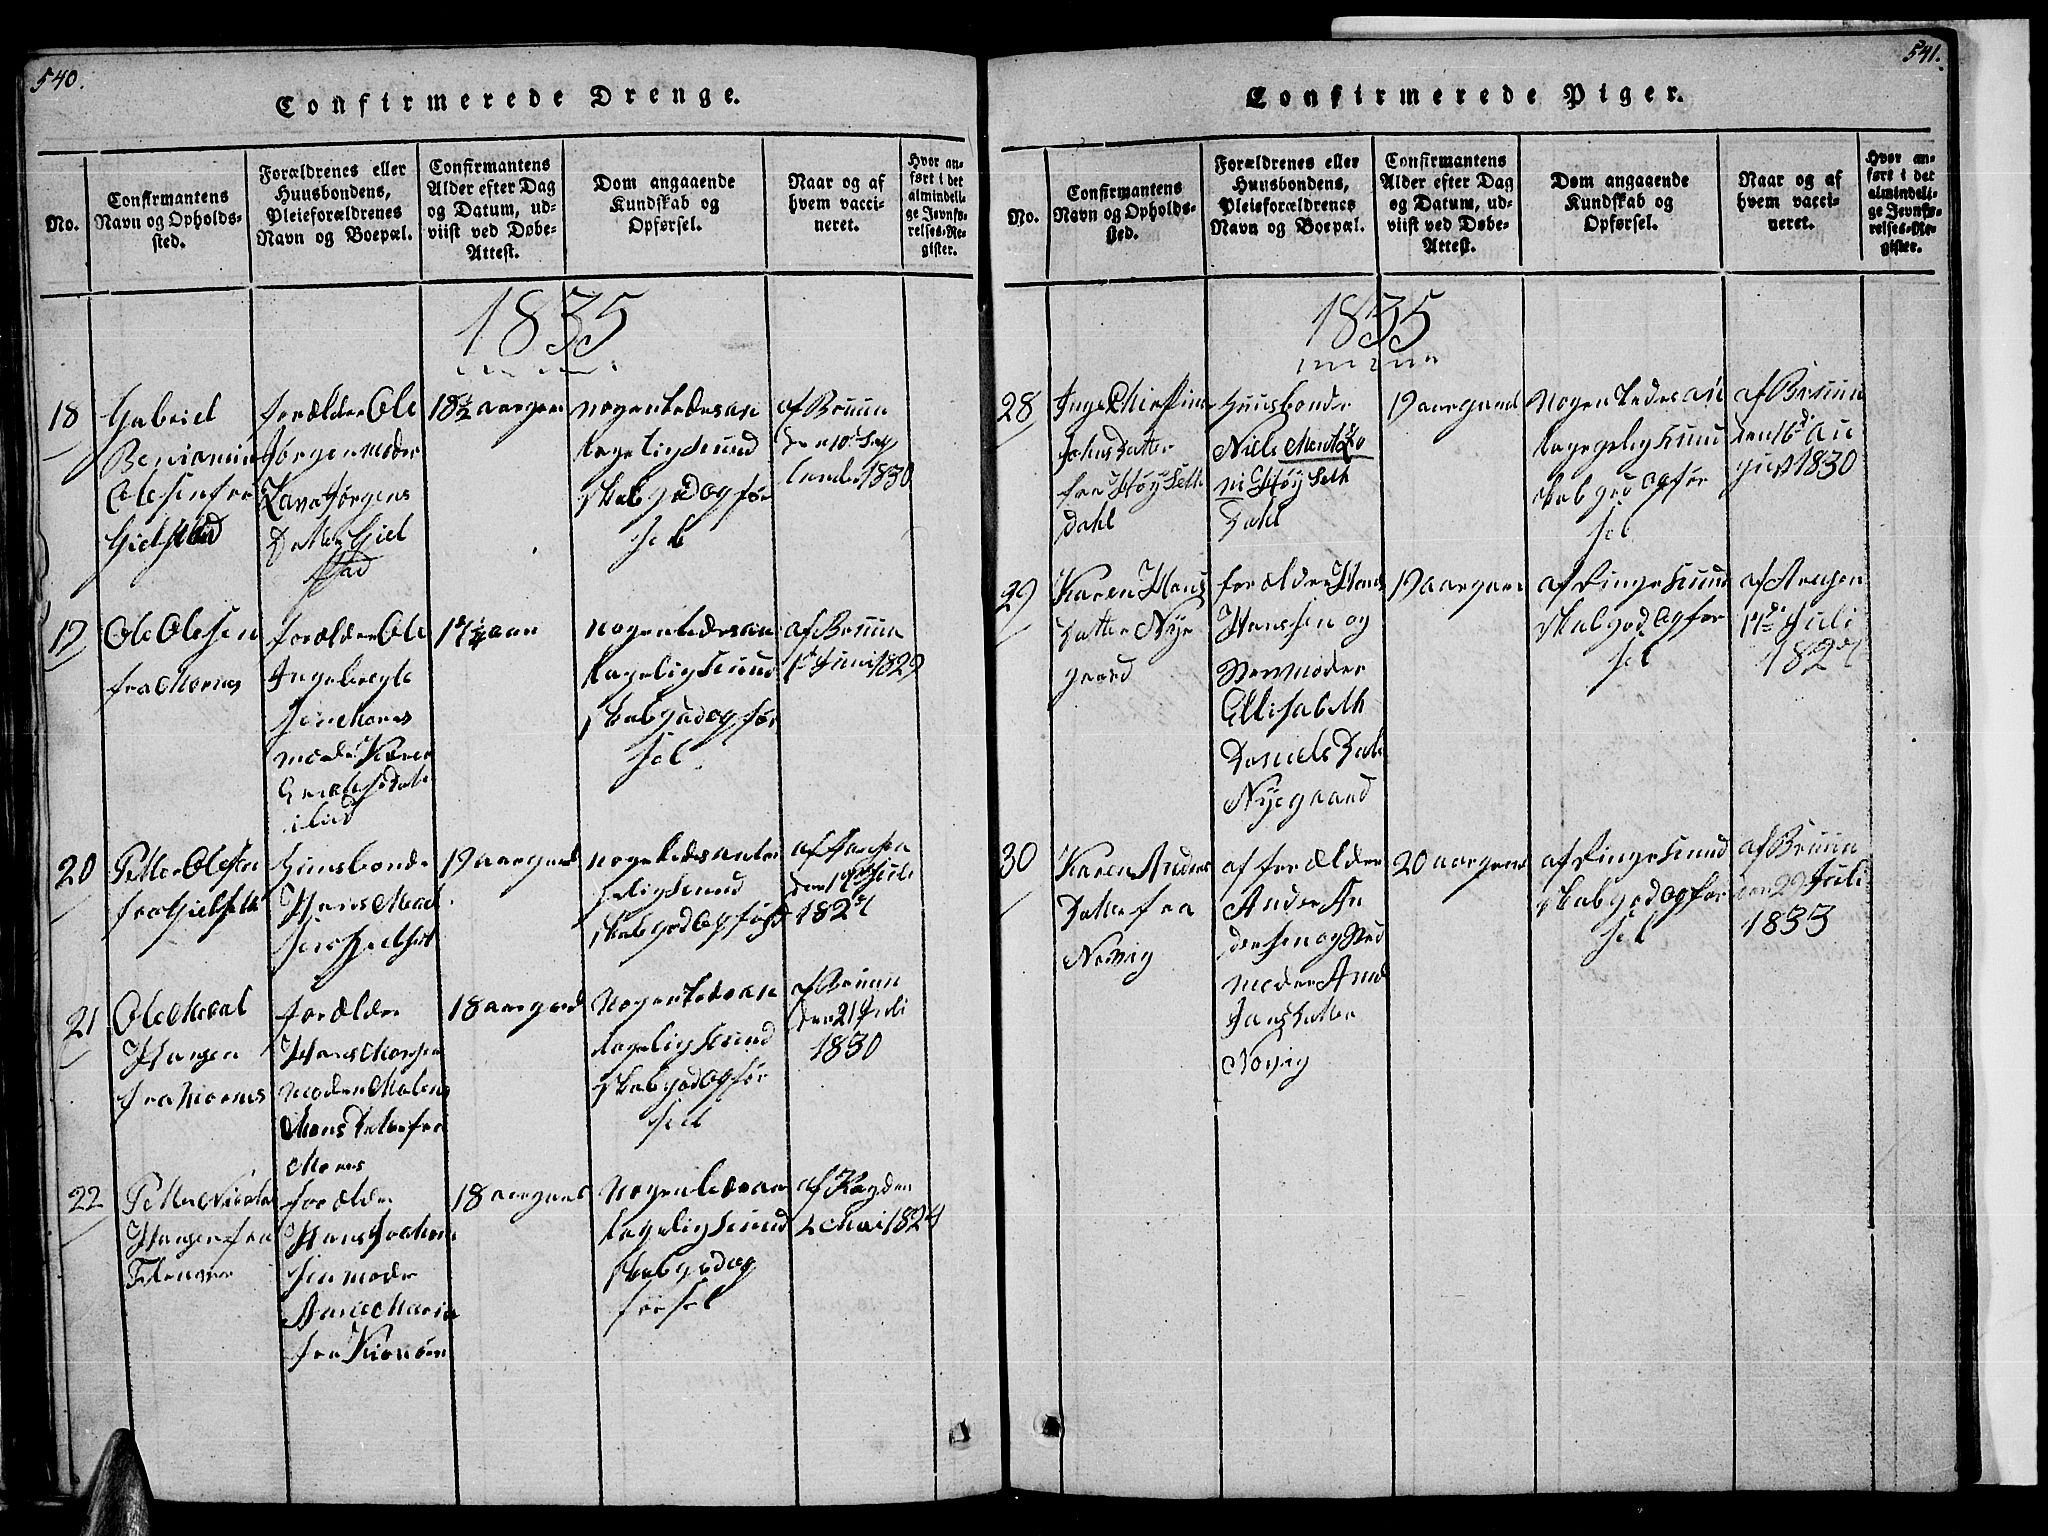 540.
Confirmerede Drenge.
No.
Confirmantens
Navn og Opholds-
sted.
Forældrenes eller
Huusbondens,
Pleieforældrenes
Navn og Boepæl.
Confirmantens
Alder efter Dag
og Datum, ud-
viist ved Døbe-
Attest.
Dom angaaende
Kundskab og
Opførsel.
Naar og af
hvem vacci-
neret.
Hvor an-
ført i det
almindeli-
ge Jevnfø-
relses-Re-
gister.
1835
18
Gabriel
Beniamin
Olesen fra
Gielstad
forælder Ole
Jørgen moder
Lava Jørgens
Datter Giel
stad
18 1/2 aargam
nogenledes an
tagelig kund
skab god opfør
sel
af Bruun
den 10de Sep
tember 1830
19
Ole Olesen
fra Mornes
forælder Ole
Ingebregt
sen Mornes
moder Karen
17 1/2 aar
nogenledes an
tagelig kund
skab god opfør
sel
af Bruun
1d Juni 1829
20
Petter Olesen
fra Gielseth
Huusbonde
Hans
19 aargaml
nogenledes anta
gelig kund
skab god opførsel
af Hansen
den Juli
1827
21
Ole
Hansen
fra Mornes
forælder
Hans
moder Malena
Mons Datter fra
Mornes
18 aargaml
nogenledes an
tagelig kund
skab god opfør
sel
af Bruun
den 21 Juli
1830
22
Petter Nicolai
Hansen fra
forælder
Hans Joachim
sen moder
Maria
fra
18 aargaml
nogenledes an
tagelig kund
skab god op
førsel
af
2 Mai 1824
541.
Confirmerede Piger.
No.
Confirmantens
Navn og Opholds-
sted.
Forældrenes eller
Huusbondens,
Pleieforældrenes
Navn og Boepæl.
Confirmantens
Alder efter Dag
og Datum, ud-
viist ved Døbe-
Attest.
Dom angaaende
Kundskab og
Opførsel.
Naar og af
hvem vacci-
neret.
Hvor an-
ført i det
almindeli-
ge Jevnfø-
relses-Re-
gister.
1835
28
Inge Christina
Johns datter
fra Høyseth
dahl
Huusbonde
Niels Mentzo
ni Høyseth
dahl
19 aargaml
Nogenledes an
tagelig kund
skab god opfør
sel
af Bruun
den 16d Au
gust 1830
29
Karen Hans
datter Nye
gaard
forælder Hans
Hanssen og
Stevmoder
Ellisabeth
Daniels Datt
Nyegaard
19 aargam
af ringe kund
skab god opfør
sel
af Aagesen
Juli
1827
30
Karen Anders
Datter fra
Norvig
af forælder
Ander An
dersen og Sted
moder Ane
Jans datter
Norvig
20 aargam
af ringe kund
skab god opfør
sel
af Bruun
den 29 Juli
1833